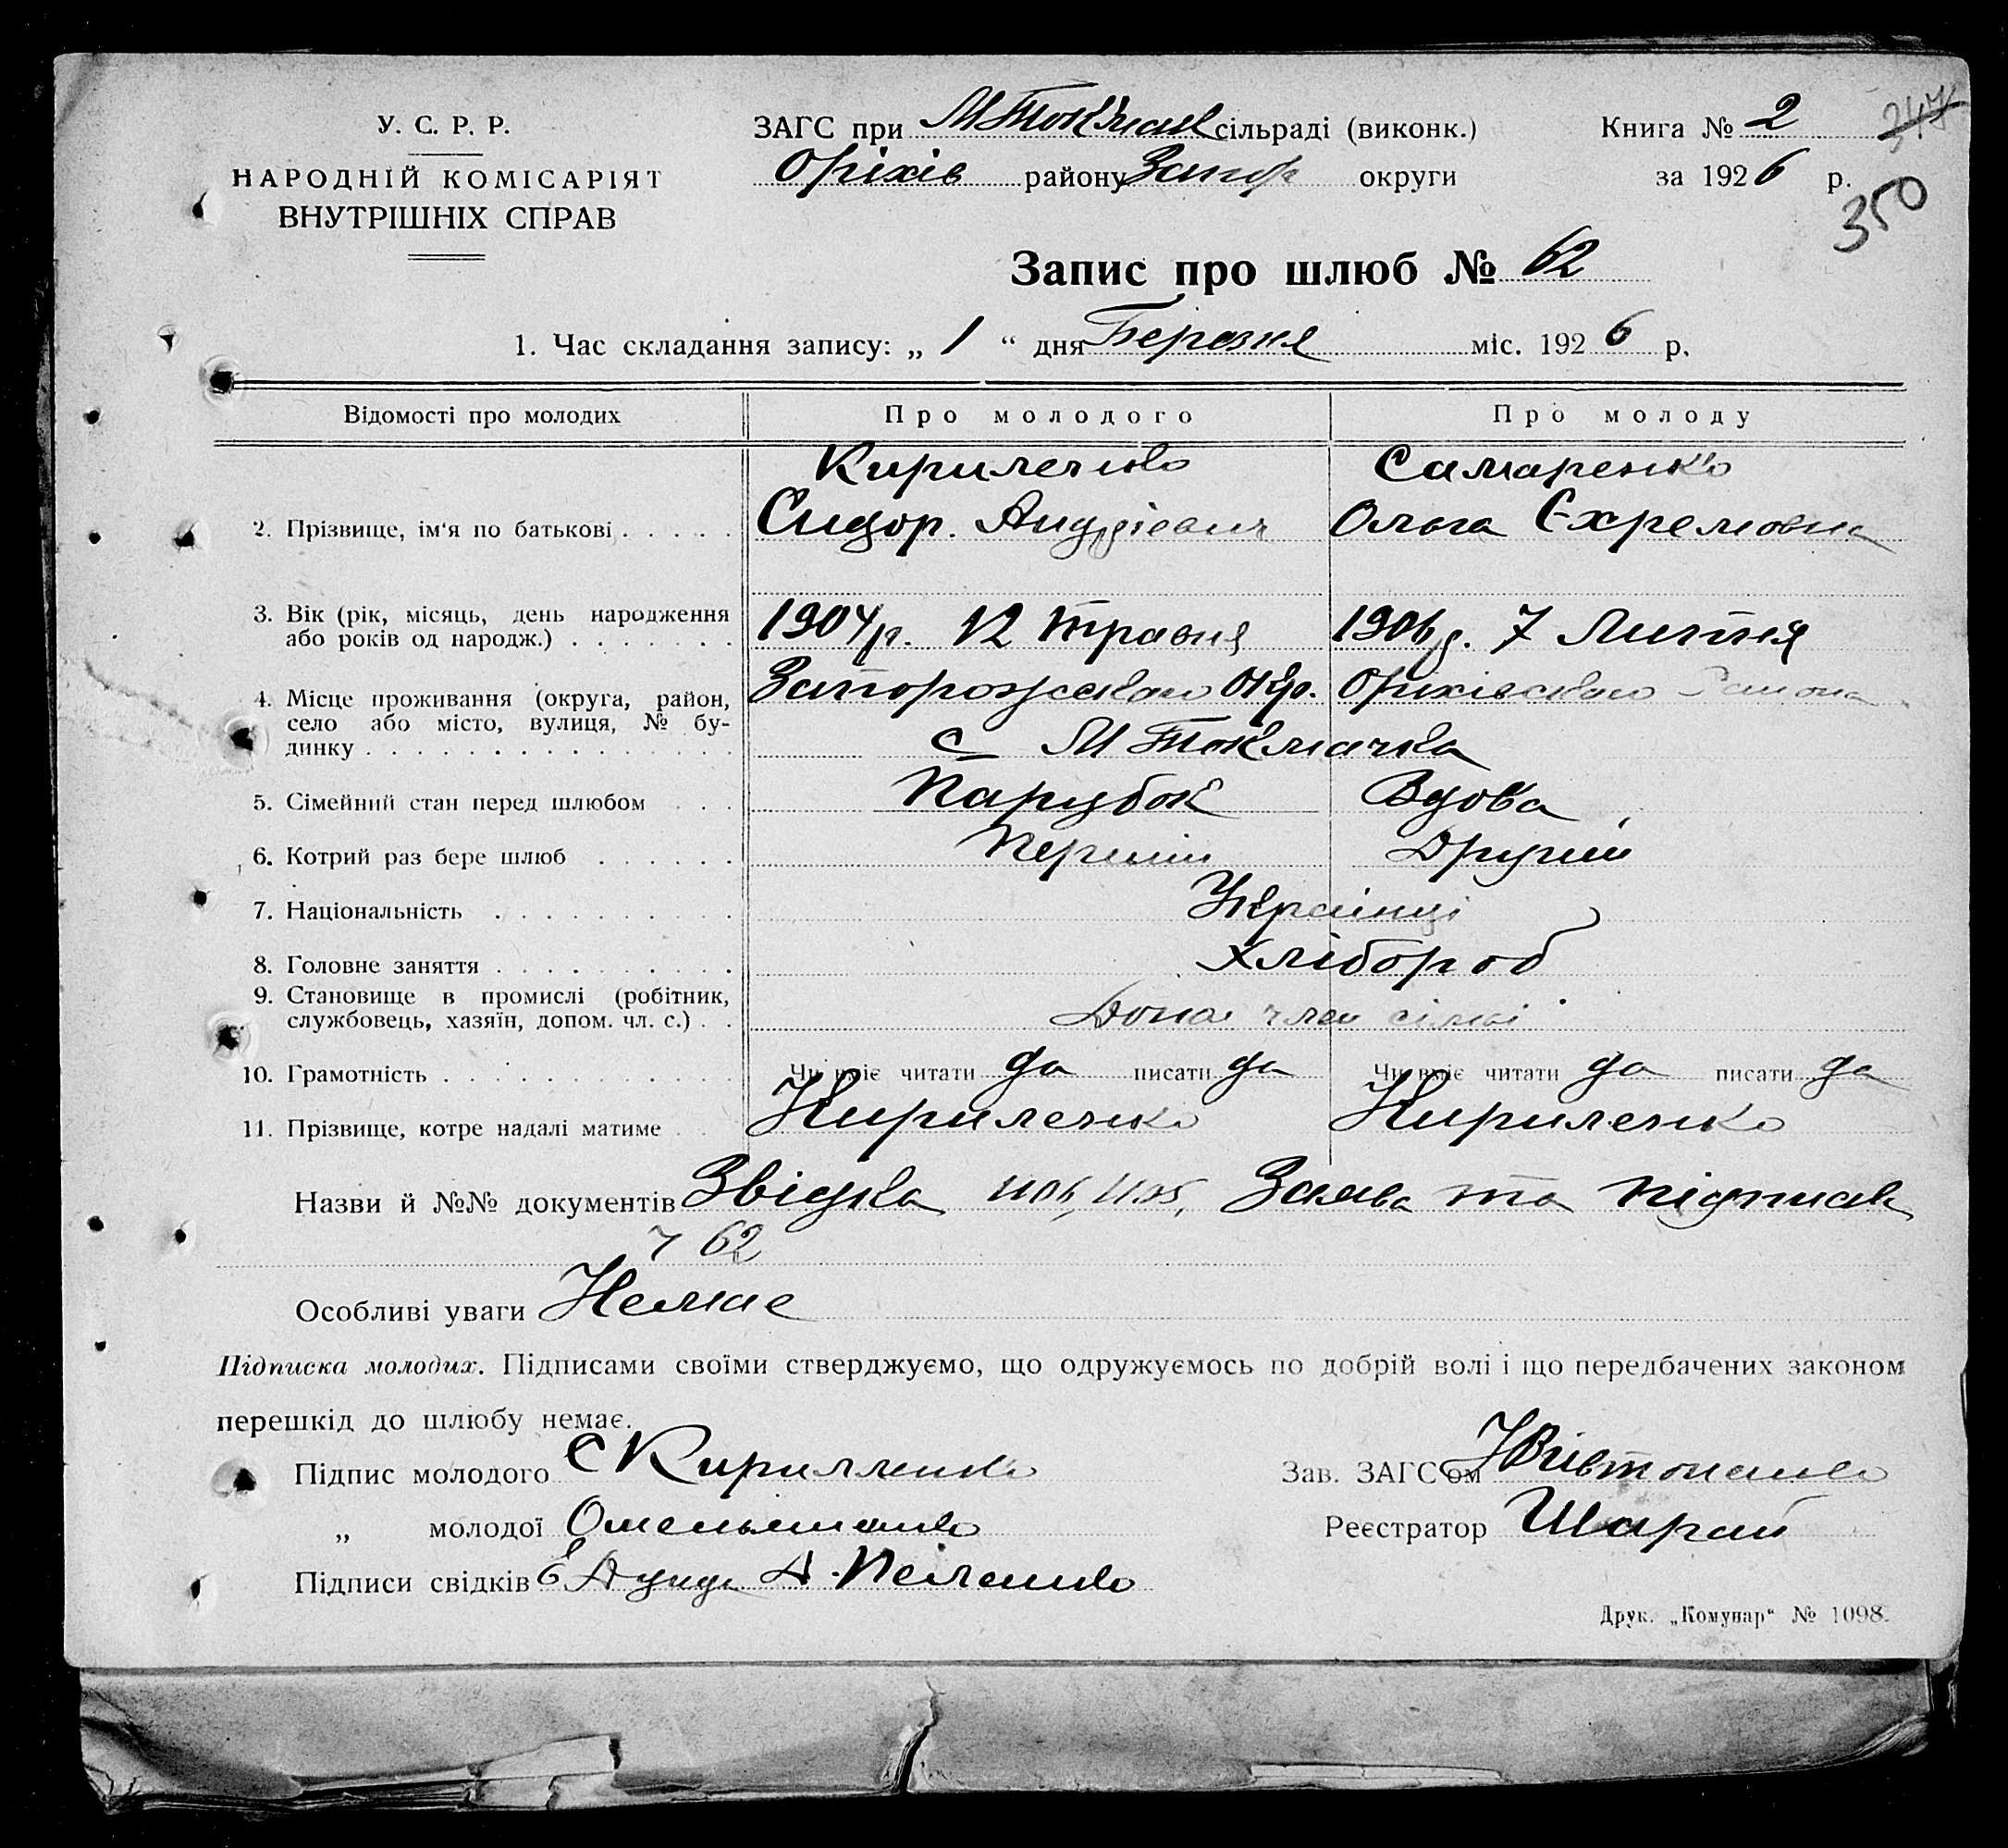 У. С. Р. Р.
НАРОДНІЙ КОМІСАРІЯТ
ВНУТРІШНІХ СПРАВ
ЗАГС при М Токмак сільраді (виконк.)
Оріхів району Запор округи
Книга № 2
за 1926 р.
347
350
Запис про шлюб № 62
1. Час складання запису: „ 1 “ дня Березня міс. 1926 р.
Відомості про молодих Про молодого Про молоду
Кириленко Самаренко
2. Прізвище, ім‘я по батькові Сидор Андрієвич Ольга Єхремовна
3. Вік (рік, місяць, день народження
або років од народж.) 1904 р. 12 травня 1906 р. 7 Липня
4. Місце проживання (округа, район,
село або місто, вулиця, № бу-
динку Запорожського Окр. Оріхівського Района
с М Токмачка
5. Сімейний стан перед шлюбом Парубок Вдова
6. Котрий раз бере шлюб Перший Другий
7. Національність Українці
8. Головне заняття Хлібороб
9. Становище в промислі (робітник,
службовець, хазяїн, допом. чл. с.) член сімьї
10. Грамотність Чи вміє читати да писати да Чи вміє читати да писати да
11. Прізвище, котре надалі матиме Кириленко Кириленко
Назви й №№ документів Звідка 1106, 1105, Заява та підписк
7 62
Особливі уваги Немае
Підписка молодих. Підписами своїми стверджуємо, що одружуємось по добрій волі і що передбачених законом
перешкід до шлюбу немає.
Підпис молодого С Кирилленко
„ молодої Омельяненко
Підписи свідків
Зав. ЗАГС‘ом
Реєстратор Шарай
Друк. „Комунар“ № 1098.